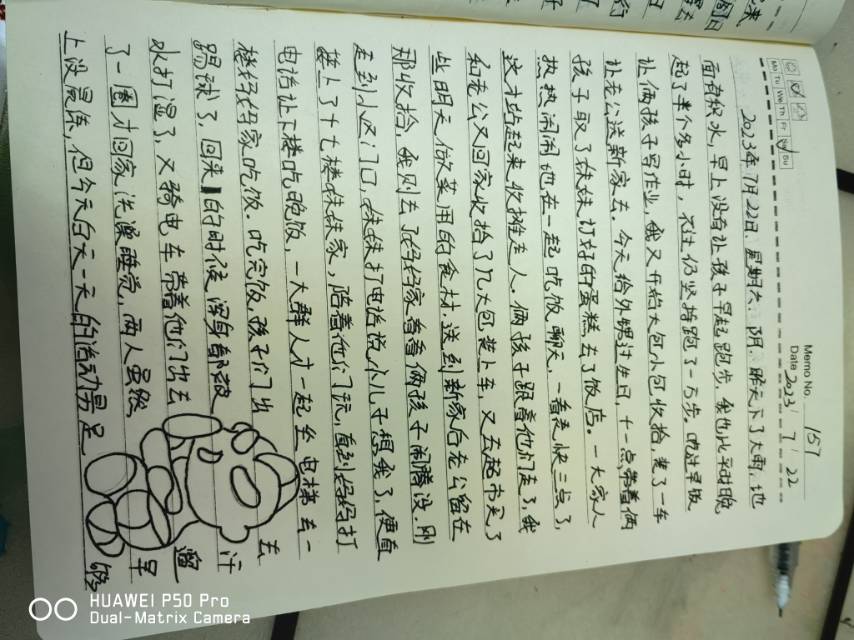 Memo No. 157
Mo Tu We Th Fr Sa Su
Date 2023 / 7 / 22
2023年7月22日,星期六,阴。昨天下了大雨,地
面有积水,早上没有让孩子早起跑步,我也比平时晚
起了半个多小时,不过仍坚持跑了一万步。吃过早饭
让俩孩子写作业,我又开始大包小包收拾,装了一车
让老公送新家去。今天给外甥过生日,十一点带着俩
孩子取了妹妹订好的蛋糕去了饭店。一大家人
热热闹闹地在一起吃饭聊天,一看表快三点了,
这才站起来收摊走人。俩孩子跟着他们走了,我
和老公又回家收拾了几大包装上车,又去超市买了
些明天做菜用的食材,送到新家后老公留在
那收拾,我则去了妈妈家看看俩孩子闹腾没。刚
走到小区门口,妹妹打电话说小儿子想我了,便直
接上了十七楼妹妹家,陪着他们玩,直到妈妈打
电话让下楼吃晚饭,一大群人才一起坐电梯去一
楼妈妈家吃饭。吃完饭,孩子们出去
踢球了,回来的时候浑身都被汗
水打湿了,又骑电车带着他们出去遛
了一圈才回家洗澡睡觉,两人虽然早
上没晨练,但今天白天一天的活动男足够
HUAWEI P50 Pro
Dual-Matrix Camera